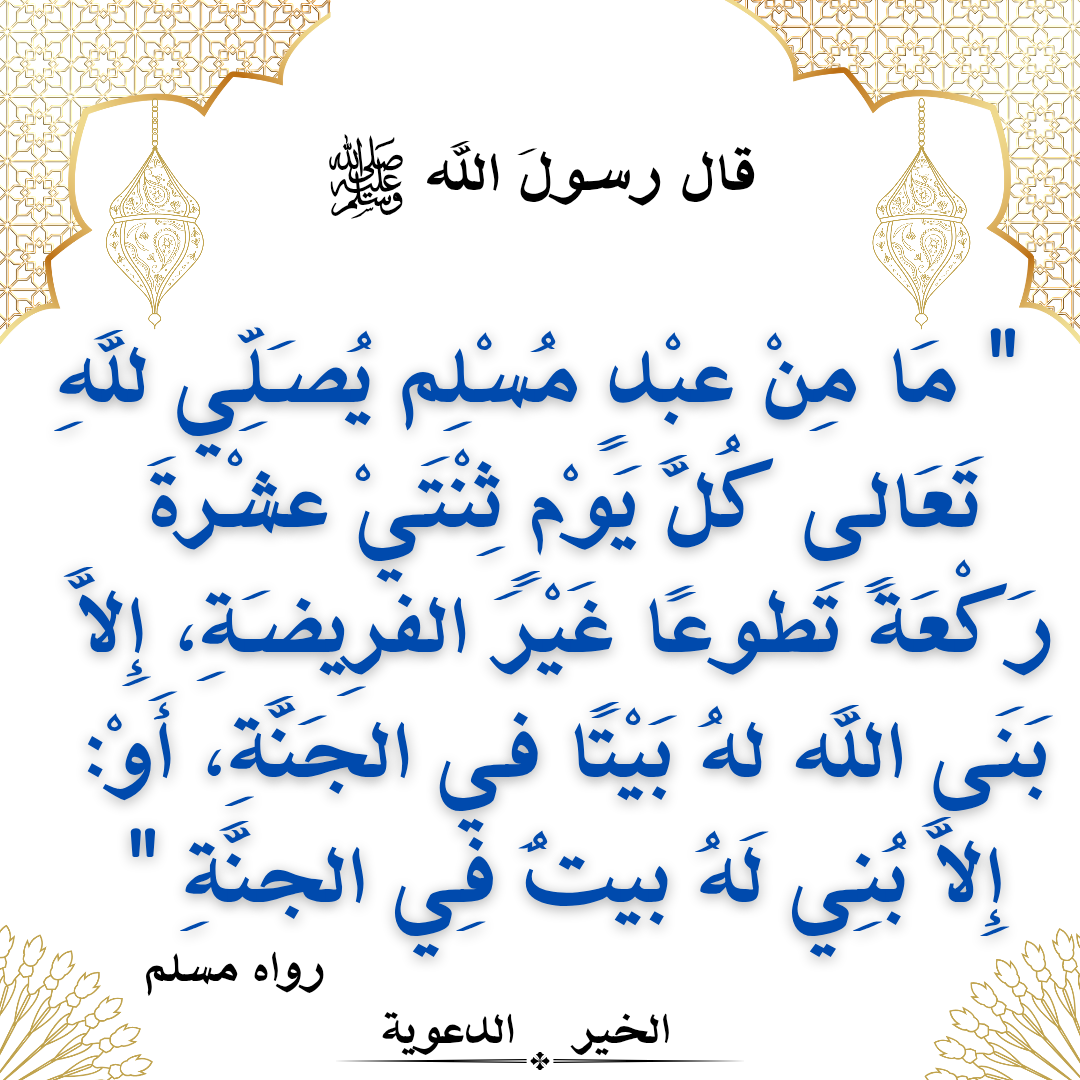 قال رسولَ اللَّه ﷺ
" مَا مِنْ عبْد مُسْلِم يُصَلِّي للَّهِ
تَعَالى كُلَّ يَوْمٍ ثِنْتَيْ عشْرةَ
رَكْعَةً تَطوعًا غَيْرَ الفرِيضَةِ، إِلاَّ
بَنَى اللَّه لهُ بَيْتًا في الجَنَّةِ، أَوْ:
إِلاَّ بُنِي لَهُ بيتٌ فِي الجنَّةِ "
رواه مسلم
الخير الدعوية